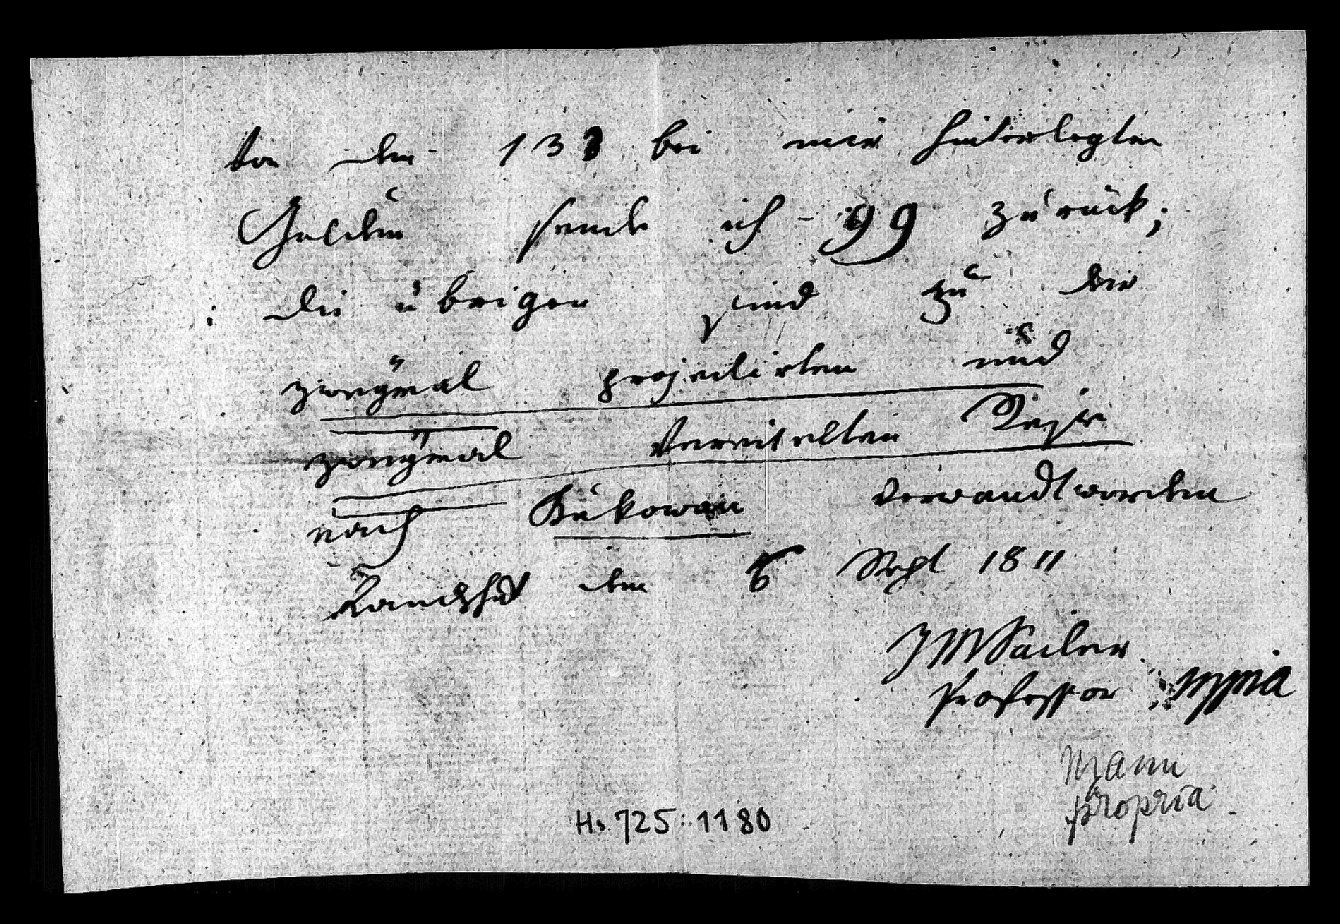 Von den 133 bei mir hinterlegten
Gulden sende ich 99 zurück;
die übrigen sind zu der
zweÿmal projectirten und
zweÿmal vereitelten Reise
nach Bukowan verwandt worden
Landshut den 6 Sept 1811
JMSailer
Professor mppria
Manu
propria
Hs 725:1180